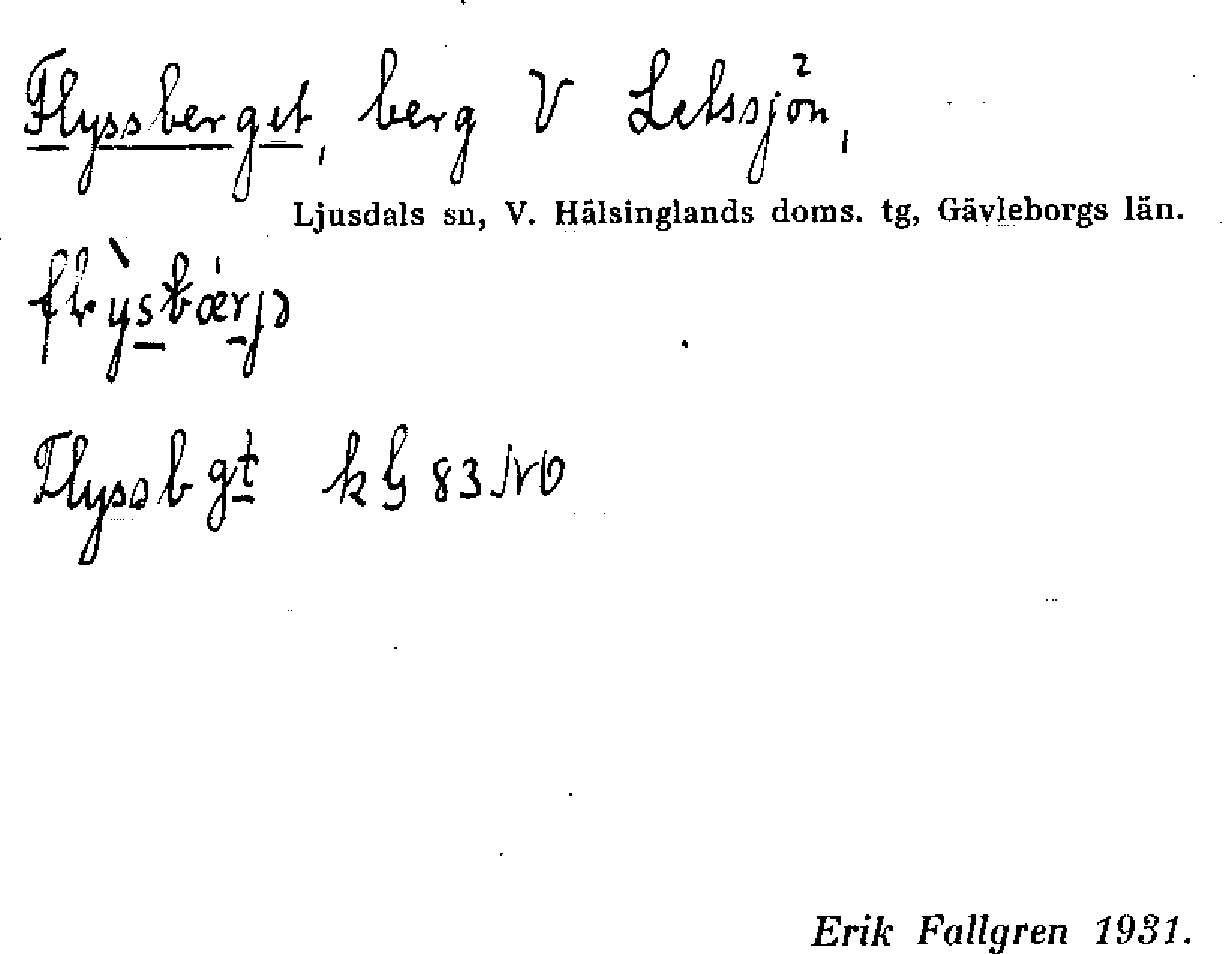 Flyssberget, berg V Letssjön,
Ljusdals sn, V. Hälsinglands doms. tg, Gävleborgs län.
Flyssbgt kbl 83 NO
Erik Fallgren 1931.